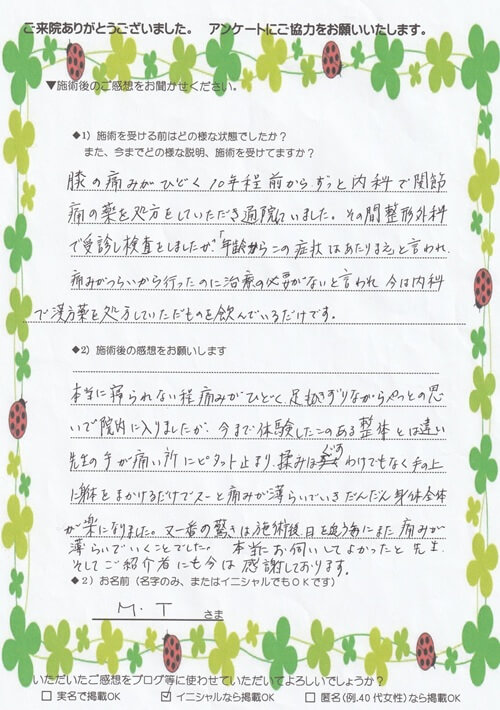 ご来院ありがとうございました。 アンケートにご協力をお願いいたします。
▼施術後のご感想をお聞かせください。
◆1）施術を受ける前はどの様な状態でしたか？
また、今までどの様な説明、施術を受けてますか？
膝の痛みがひどく10年程前からずっと内科で関節
痛の薬を処方をしていただき通院していました。その間整形外科
で受診し検査をしましたが、「年齢からこの症状はあたりまえと言われ
痛みがつらいから行ったのに治療の必要がないと言われ 今は内科
で漢方薬を処方していただものを飲んでいるだけです。
◆2）施術後の感想をお願いします
本当に寝られない程痛みがひどく、足もひきずりながらやっとの思
いで院内に入りましたが、今まで体験したことのある整体とは違い
先生の手が痛い所にピタット止まり、揉みほぐすわけでもなく手の上
に身体をまかけるだけでスーと痛みが薄らいでいきだんだん身体全体
が楽になりました。又一番の驚きは施術後、日を追う毎にまた痛みが
薄らいでいくことでした。 本当にお伺いしてよかったと先生
そしてご紹介者にも今は感謝しております。
◆2）お名前（名字のみ、またはイニシャルでもOKです）
M.T さま
いただいたご感想をブログ等に使わせていただいてよろしいでしょうか？
□ 実名で掲載OK ☑ イニシャルなら掲載OK □ 匿名（例.40代女性）なら掲載OK